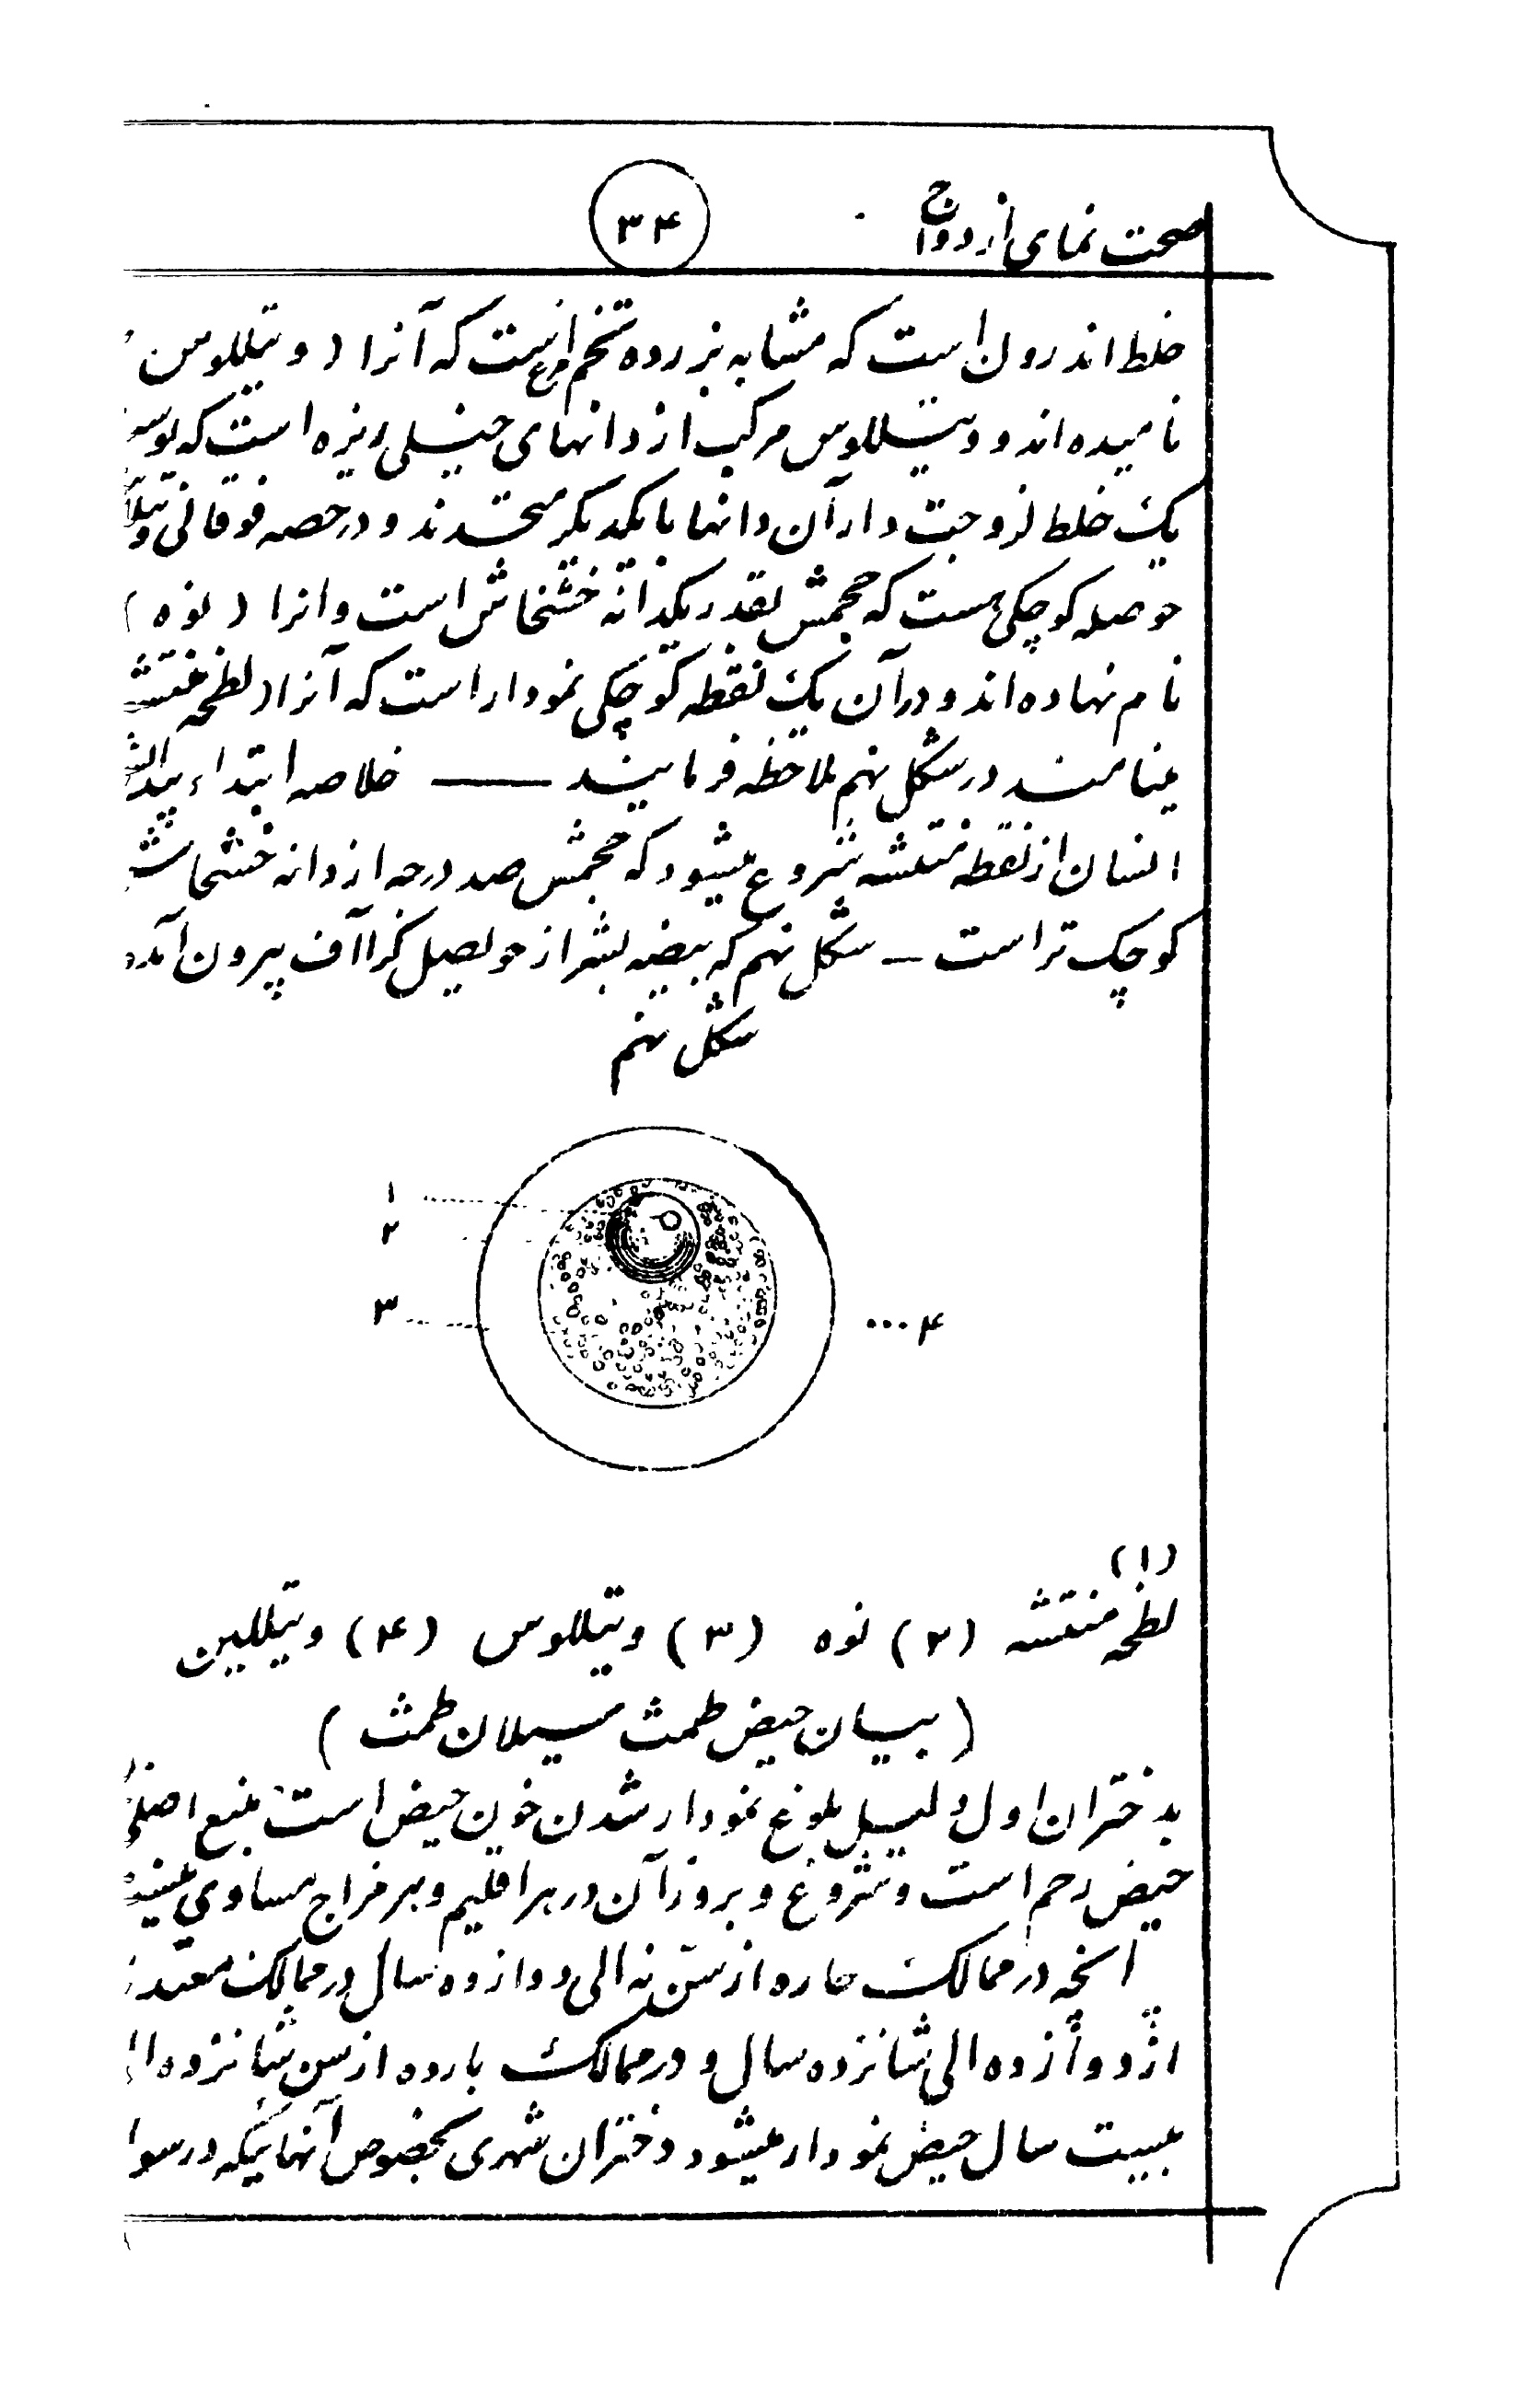 صحت نمای ازدواج
۳۴
خلط اندرون است که مشابه بزرده تخم مرغ است که آنرا ( ویتللوس
نامیده اند و ویتللوس مرکب از دانهای خیلی ریزه است که
یک خلط لزوجت دار آن دانها با یکدیگر متحدند و در حصه فوقانی
حوصله کوچکی هست که حجمش بقدر یکدانه خشخاش است وانرا ( نوه )
نام نهاده اند و در آن یک نقطه کوچکی نمودار است که آنرا ( لطخه
مینامند در شکل نهم ملاحظه فرمایند — خلاصه ابتداء
انسان از نقطه منتشه شروع میشود که حجمش صد درجه از دانه
کوچک تر است – شکل نهم که بیضه بشر از حویصل گراآف بیرون آمده
شکل نهم
۱
۲
۳
۴
(۱)
لطخه منتشه (۲) نوه (۳) ویتللوس (۴) ویتللین
( بیان حیض طمث سیلان طمث )
بدختران اول دلیل بلوغ نمودار شدن خون حیض است منبع
حیض رحم است و شروع و بروز آن در هر اقلیم و هر مزاج مساوی
انچه در ممالک حاره از سن نه الی دوازده سال در ممالک
از دوازده الی شانزده سال و در ممالک بارده از سن شانزده
بیست سال حیض نمودار میشود دختران شهری بخصوص آنهائیکه در